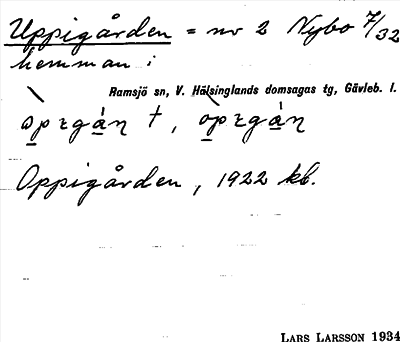 Uppigården = nr 2 Nybo 7/32
hemman i
Ramsjö sn, V. Hälsinglands domsagas tg, Gävleb. l.
Oppigården, 1922 kb.
LARS LARSSON 1934